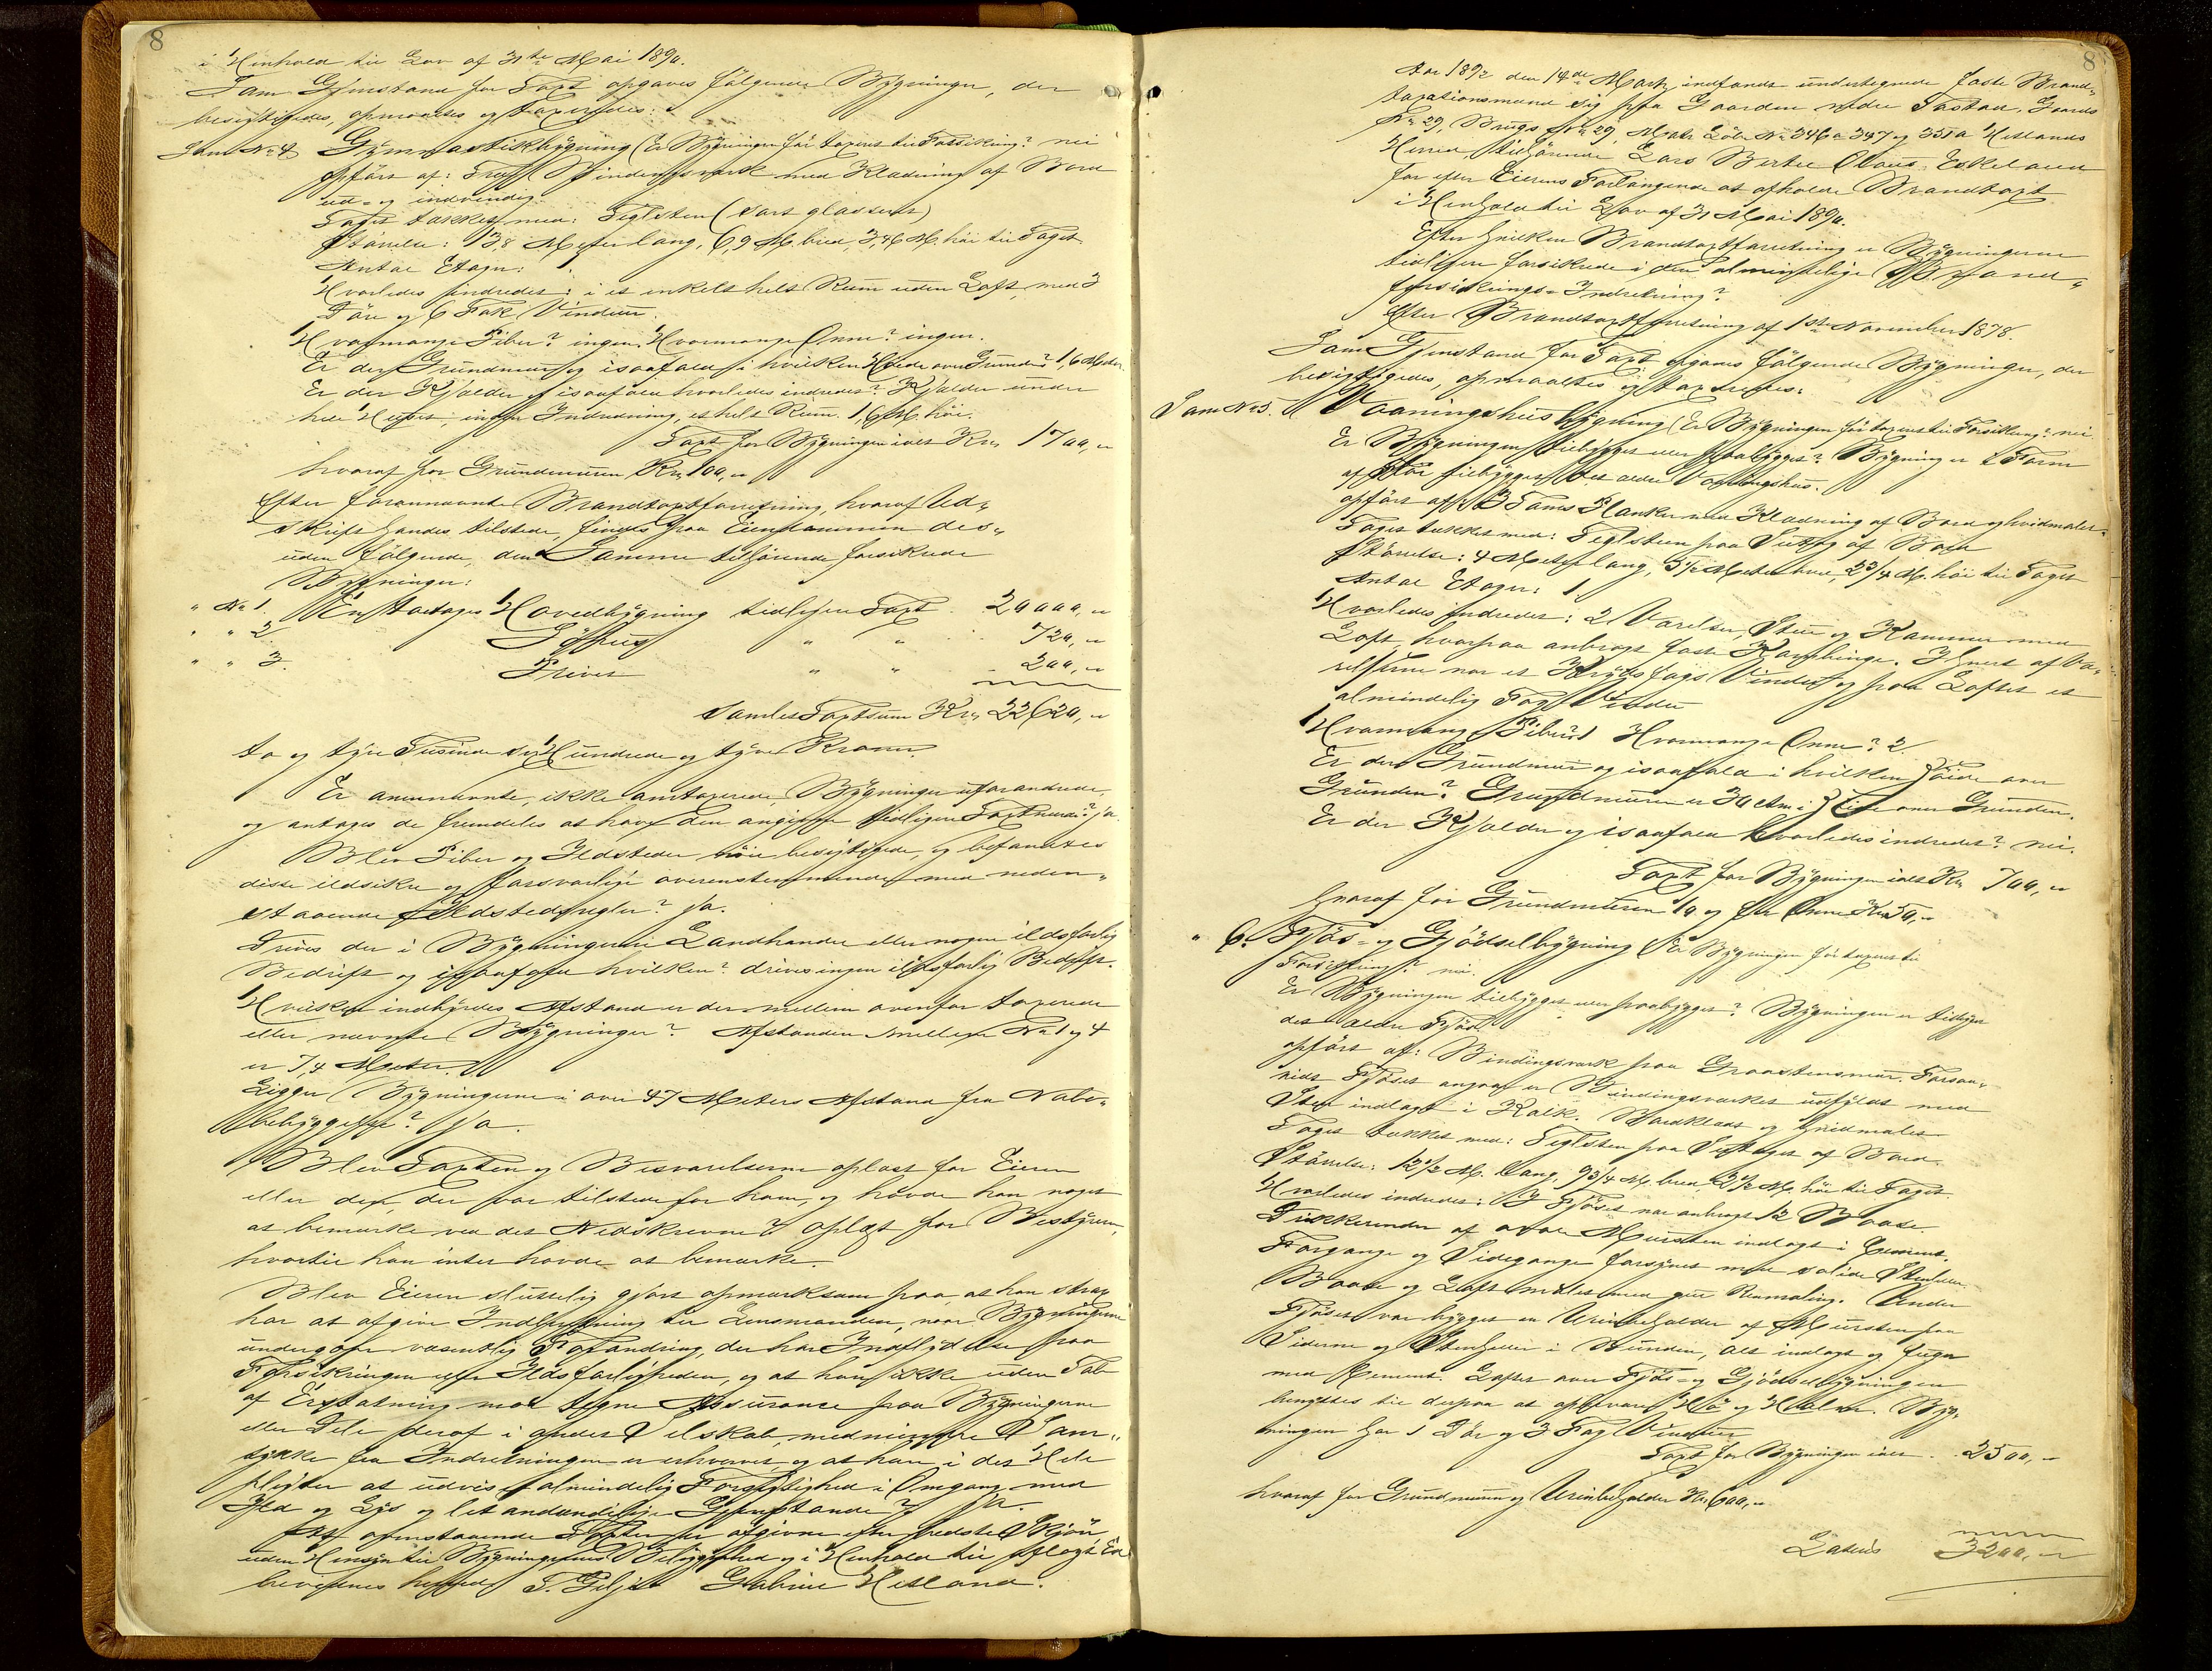 8
i Henhold til Lov af 31te Mai 1890.
Som Gjenstand for Taxt opgaves følgende Bygninger, der
besigtigedes, opmaaltes og taxeredes:
Som No 4 Gymnastikbygning (Er Bygningen før taxeret til Forsikring? nei
opført af: Bindingsverk med Klædning af Bord
ud- og indvendig.
Taget tækket med: Teglsten (sort glasseret)
Størrelse: 13,8 Meter lang, 6,9 M. bred, 3,46 M. høi til Taget
Antal Etager: 1.
Hvorledes indredet: i et enkelt helt Rum uden Loft, med 3
Døre og 6 Fak Vinduer.
Hvormange Piber? ingen. Hvormange Ovne? ingen.
Er der Grundmur og isaafald i hvilken Høide over Grunden? 1,6 Meter
Er der Kjælder og isaafald hvorledes indredet? Kjælder under
hele Huset, ingen Indredning, et helt Rum 1,6 M. høi.
Taxt for Bygningen ialt Kr. 1700,"
hvoraf for Grundmuren Kr. 100,"
Efter forannævnte Brandtaxtforretning, hvoraf Ud-
skrift havdes tilstede, findes paa Eiendommen des-
uden følgende, den Samme tilhørende forsikrede
Bygninger:
" No 1. En toetages Hovedbygning tidligere Taxt 20000,"
" " 2. " " 720,"
" " 3. Privet " " 200,"
Samlet Taxtsum Kr. 22620,"
to og tyve Tusinde sex Hundrede og tyve Kroner.
Er anennævnte, ikke omtaxerede Bygninger uforandrede,
og antages de fremdeles at have den angivne tidligere Taxtværdi? ja.
Blev Piber og Ildsteder nøie besigtigede, og befandtes
disse ildsikre og forsvarlige overensstemmende med neden-
staaende Ildstedsregler? ja.
Drives der i Bygningerne Landhandel eller nogen ildsfarlig
Bedrift og isaafald hvilken? drives ingen ildsfarlig Bedrift.
Hvilken indbyrdes Afstand er der mellem ovenfor taxerede
eller nævnte Bygninger? Afstanden mellem No 1 og 4
er 7,4 Meter.
Ligger Bygningerne i over 47 Meters Afstand fra Nabo-
bebyggelse? ja.
Blev Taxten og Besvarelserne oplæst for Eieren
eller den, der var tilstede for ham, og havde han noget
at bemærke ved det Nedskrevne? Oplæst for Bestyreren,
hvortil han intet havde at bemærke.
Blev Eieren sluttelig gjort opmærksom paa, at han strax
har at afgive Indberetning til Lensmanden, naar Bygningerne
undergaar væsentlig Forandring, der har Indflydelse paa
Forsikringen eller Ildsfarligheden, og at han ikke uden Tab
af Erstatning maa tegne Assurance paa Bygningerne
eller Dele deraf i andet Selskab, medmindre Sam-
tykke fra Indretningen er erhvervet, og at han i det Hele
pligter at udvise almindelig Forsigtighed i Omgang med
Ild og Lys og let antændelige Gjenstande? ja.
At ovenstaaende Taxter er afgivne efter bedste Skjøn,
uden Hensyn til Bygningernes Beliggenhed og i Henhold til aflagt Ed
bevidnes herved T. Giljes Gabriel Hetland.
8
Aar 1892 den 14de Marts indfandt undertegnede faste Brand-
taxationsmænd sig paa Gaarden nedre Tastad, Gaards
No 29, Brugs No 29, Matr. Løb. No 346a 347 og 351a Hetlands
Herred, tilhørende Lars Bertel Claus. Eskeland
for efter Eierens Forlangende at afholde Brandtaxt
i Henhold til Lov af 31 Mai 1890.
Efter hvilken Brandtaxtforretning er Bygningerne
tidligere forsikrede i den almindelige Brand-
forsikrings-Indretning?
Efter Brandtaxtforretning af 1ste November 1878.
Som Gjenstand for Taxt opgaves følgende Bygninger, der
besigtigedes, opmaaltes og taxeredes:
Som No 5. Vaaningshusbygning (Er Bygningen før taxeret til Forsikring? nei
Er Bygningen tilbygget eller paabygget? Bygning er i Form
af Fløi tilbygget det ældre Vaaningshus.
opført af: 3 Toms Planker med Klædning af Bord og hvidmalet.
Taget tækket med: Teglsten paa Sutag af Bord
Størrelse: 4 Meter lang, 5 1/2 Meter bred, 2 3/4 M. høi til Taget
Antal Etager: 1
Hvorledes indredet: 2 Værelser, Stue og Kammer med
Loft, hvorpaa anbragt faste Karphinge. I hvert af Væ-
relserne var et Krydsfags Vindu og paa Loftet et
almindelig Fag Vindu
Hvormange Piber? 1 Hvormange Ovne? 2
Er der Grundmur og isaafald i hvilken Høide over
Grunden? Grundmuren er 30 Ctm. i Høide over Grunden.
Er der Kjælder og isaafald hvorledes indredet? nei.
Taxt for Bygningen ialt Kr. 700,"
hvoraf for Grundmuren 10 og for Ovne Kr. 50,-
" 6. Fjøs- og Gjødselbygning (Er Bygningen før taxeret til
Forsikring? nei.
Er Bygningen tilbygget eller paabygget? Bygningen er tilbygget
det ældre Fjøs.
opført af: Bindingsværk paa Graastensmur. Forsaa-
vidt Fjøset angaar er Bindingsværket udfyldt med
Sten indlagt i Kalk. Bordklædt og hvidmalet
Taget tækket med: Teglsten paa Suttaget af Bord.
Størrelse: 12 1/2 M. lang, 9 3/4 M. bred, 2 1/2 M. høi til Taget.
Hvorledes indredet: I Fjøset var anbragt 12 Baase.
af Mursten indlagt i Cement.
Forgange og Sidegange forsynet med solide Stenheller.
Baase og Loft malet med gul Stenmaling. Under
Fjøset var bygget en Urinbeholder af Mursten paa
Siderne og Stenheller i Bunden, alt indlagt og fuget
med Cement. Loftet over Fjøs- og Gjødselbygningen
benyttes til derpaa at opbevare Hø og Halm. Byg-
ningen har 1 Dør og 3 Fag Vinduer
Taxt for Bygningen ialt . 2500,-
hvoraf for Grundmuren og Urinbeholder Kr. 600,-
Lateris 3200,-